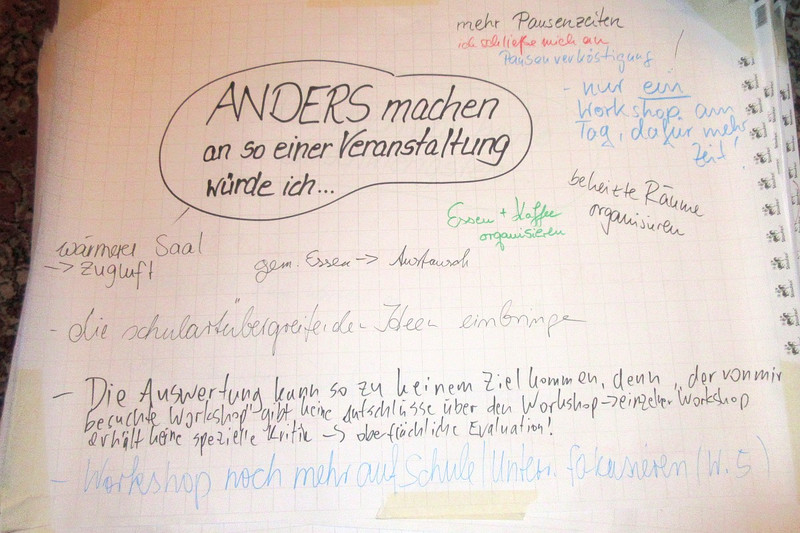 mehr Pausenzeiten
ich schließe mich an
Pausenverköstigung !
- nur ein
Workshop am
Tag, dafür mehr
Zeit!
ANDERS machen
an so einer Veranstaltung
würde ich...
beheizte Räume
organisieren
Essen + Kaffee
organisieren
wärmerer Saal
-> Zugluft
gem. Essen -> Austausch
- die schulartübergreifenden Ideen einbringen
- Die Auswertung kann so zu keinem Ziel kommen, denn "der von mir
besuchte Workshop" gibt keine Aufschlüsse über den Workshop -> einzelner Workshop
erhält keine spezielle Kritik -> oberflächliche Evaluation!
- Workshop noch mehr auf Schule/Unterr. fokusieren (W. 5)